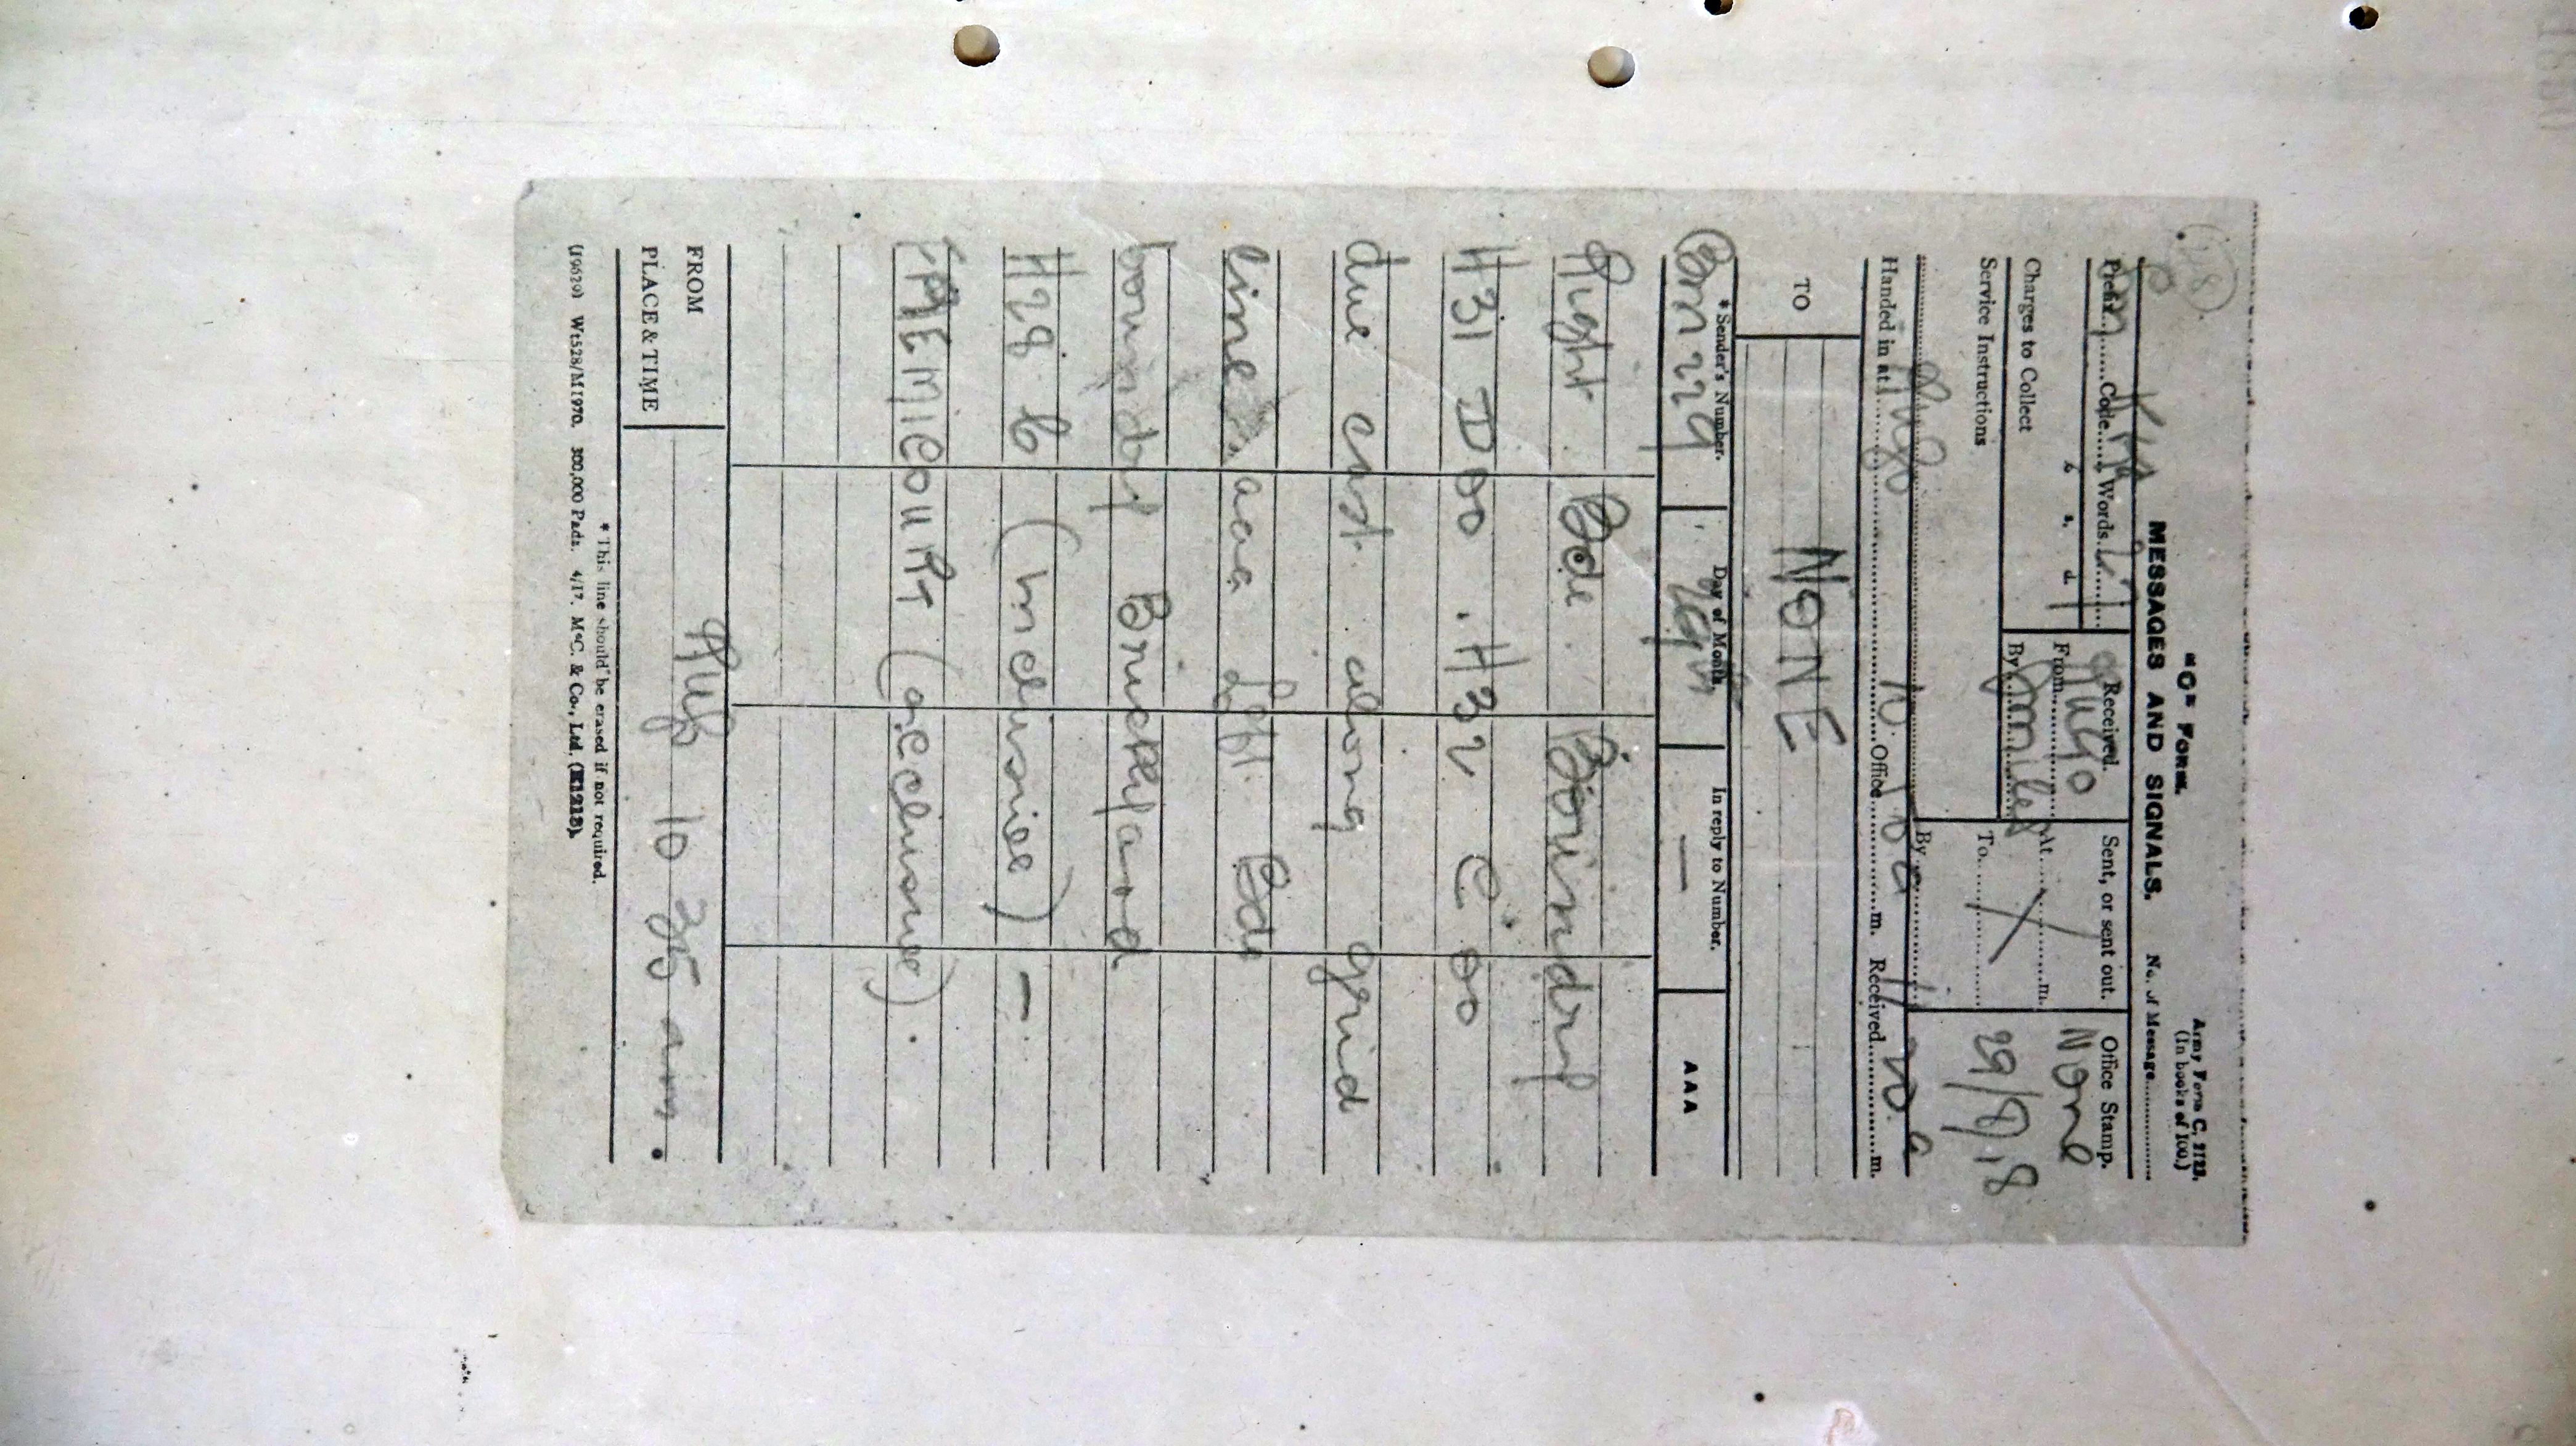 (48).
"C" Form.
Army Form C. 2123.
(In books of 100.)
MESSAGES AND SIGNALS.
No. of Message............
Prefix...... Code...... Words......
Received.
Sent, or sent out.
Office Stamp.
Charges to Collect
From
At............m.
None
Service Instructions
By
To............
29/8/18
By
Handed in at ...... Office ......m. Received ......m.
TO
NONE
* Sender's Number.
Day of Month.
In reply to Number.
AAA
Bm 229
29th
—
Right Bde Boundry
H31 D 00 . H32 C 00
due east along grid
line aaa Left Bde
boundry Brickyard
H28 b (inclusive) —
FREMICOURT (exclusive).
FROM
PLACE & TIME
10 35 am.
* This line should be erased if not required.
(19629) Wt528/M1970. 300,000 Pads. 4/17. McC. & Co., Ltd. (E1213).